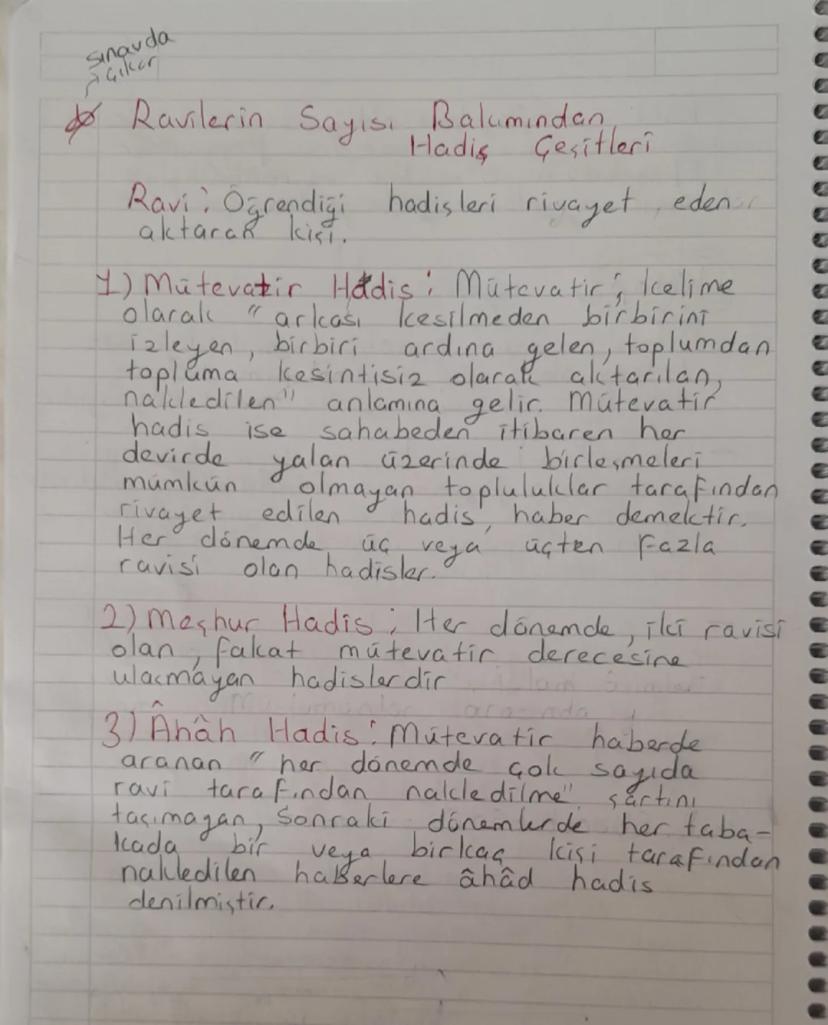 sınavda
çıkar
Ravilerin Sayısı Bakımından
Hadis Çeşitleri
Ravi: Öğrendiği hadisleri rivayet eden
aktaran kişi.
1) Mütevatir Hadis: Mütevatir; kelime
olarak "arkası kesilmeden birbirini
izleyen, birbiri ardına gelen, toplumdan
topluma kesintisiz olarak aktarılan,
nakledilen" anlamına gelir. Mütevatir
hadis ise sahabeden itibaren her
devirde yalan üzerinde birleşmeleri
mümkün olmayan topluluklar tarafından
rivayet edilen hadis, haber demektir.
Her dönemde üç veya üçten fazla
ravisi olan hadisler.
2) Meşhur Hadis: Her dönemde, iki ravisi
olan, fakat mütevatir derecesine
ulaşmayan hadislerdir
3) Âhâh Hadis: Mütevatir haberde
aranan "her dönemde çok sayıda
ravi tarafından nakledilme" şartını
taşımayan, sonraki dönemlerde her taba-
kada bir veya birkaç kişi tarafından
nakledilen haberlere âhâd hadis
denilmiştir.